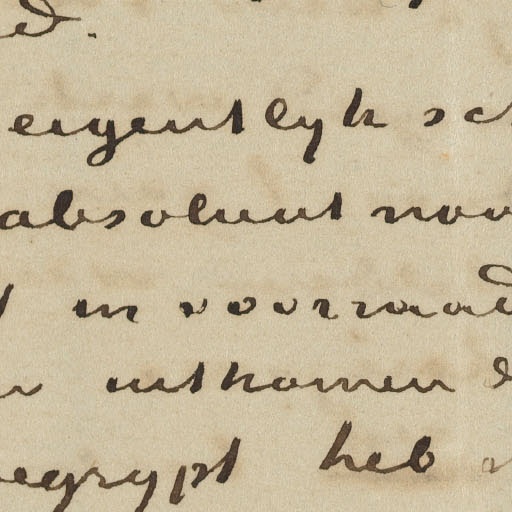 eigentlyk
absoluut noo
in voorraad
uitkomen
begrypt heb